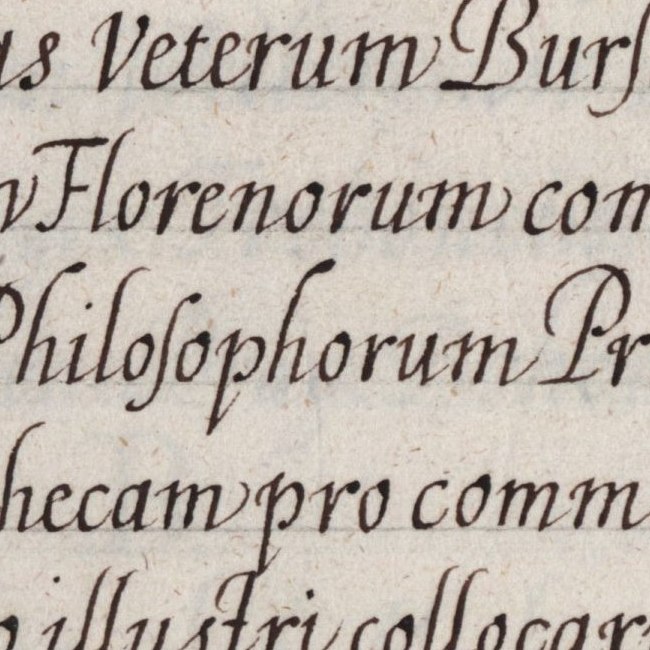 as Veterum Burſ
Florenorum com
Philoſophorum Pr
hecam pro comm
o illustri collocar